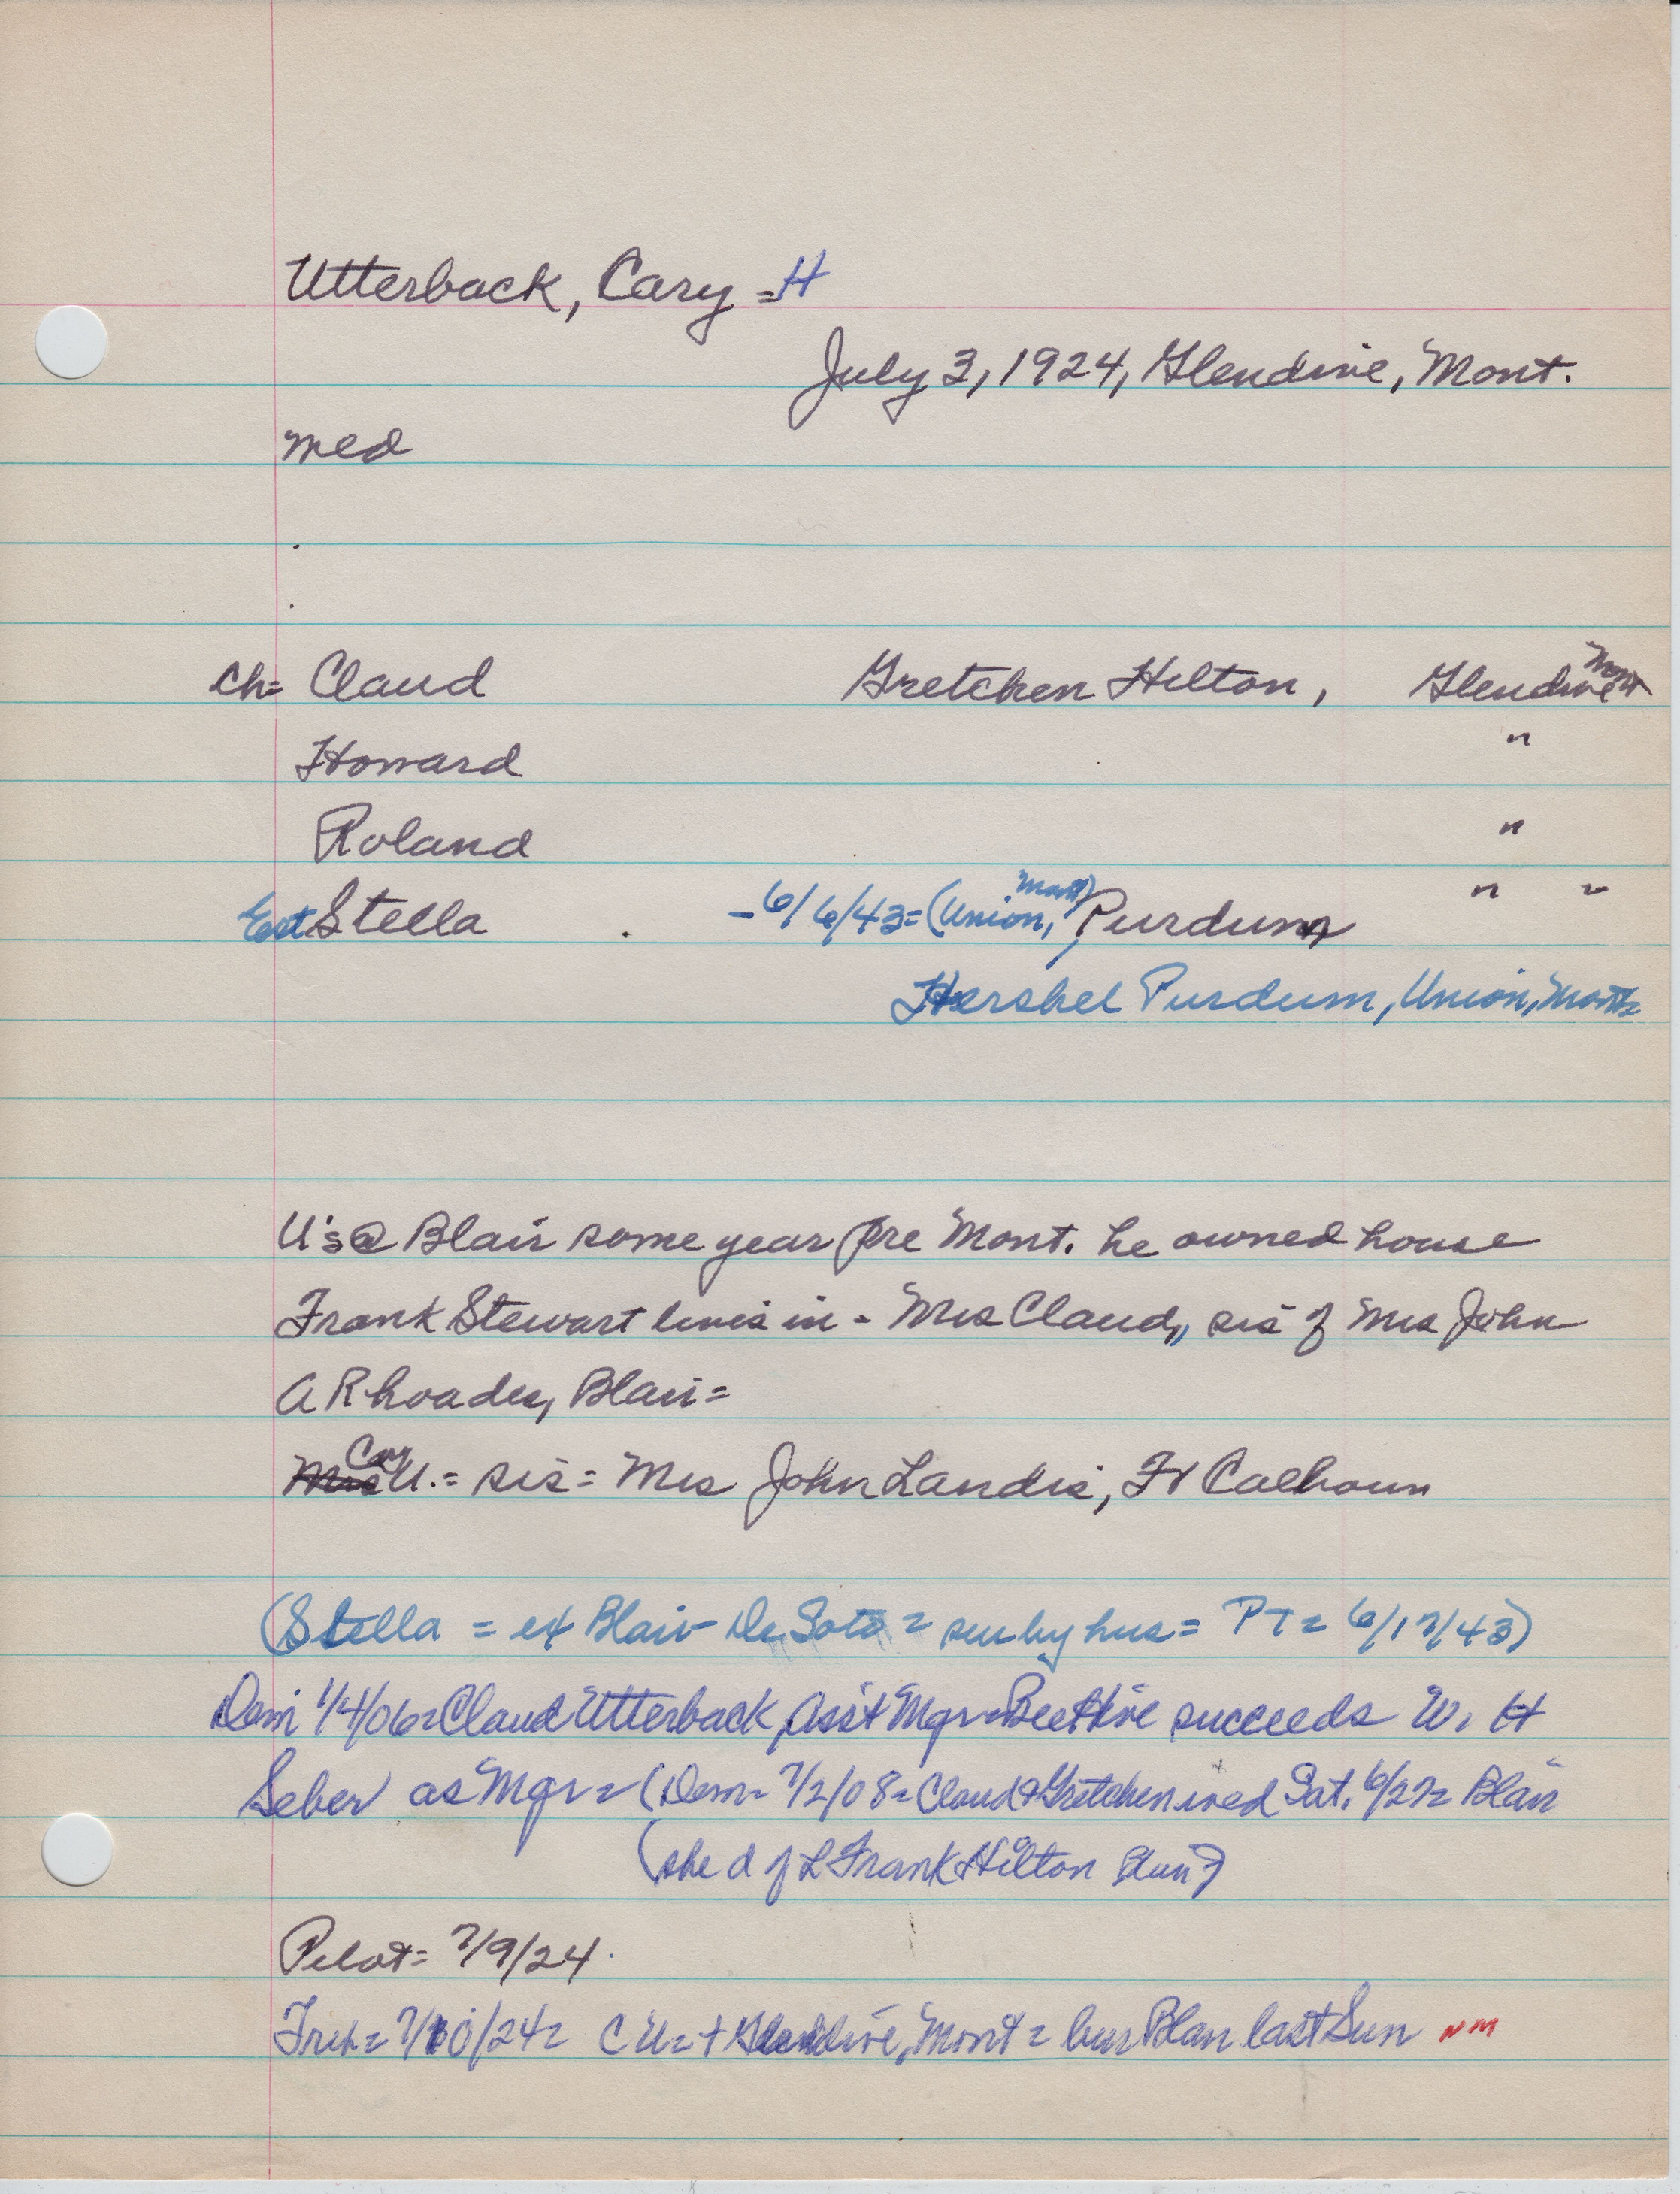 Utterback, Cary = H
July 3, 1924, Glendive, Mont.
med
ch= Claud Gretchen Hilton, Glendive Mont
Howard "
Roland "
Stella - 6/6/43= (Union, Mont) Purdum " "
Hershel Purdum, Union, Mont=
U's @ Blair some year pre Mont. he owned house
Frank Stewart lives in - Mrs Claud, sis of Mrs John
A Rhoades, Blair=
Cary U.= sis= Mrs John Landis, Ft Calhoun
(Stella = ex Blair- De Soto = sur by hus= PT= 6/17/43)
Dem 1/4/06= Claud Utterback, Asst Mgr= Beet Hive succeeds W. H
Seber as Mgr= (Dem= 7/2/08= Claud & Gretchen wed Sat. 6/27= Blair
(she d of L Frank Hilton
Pilot= 7/9/24.
Trib= 7/10/24= C U= + Glendive, Mont= bur Blair last Sun